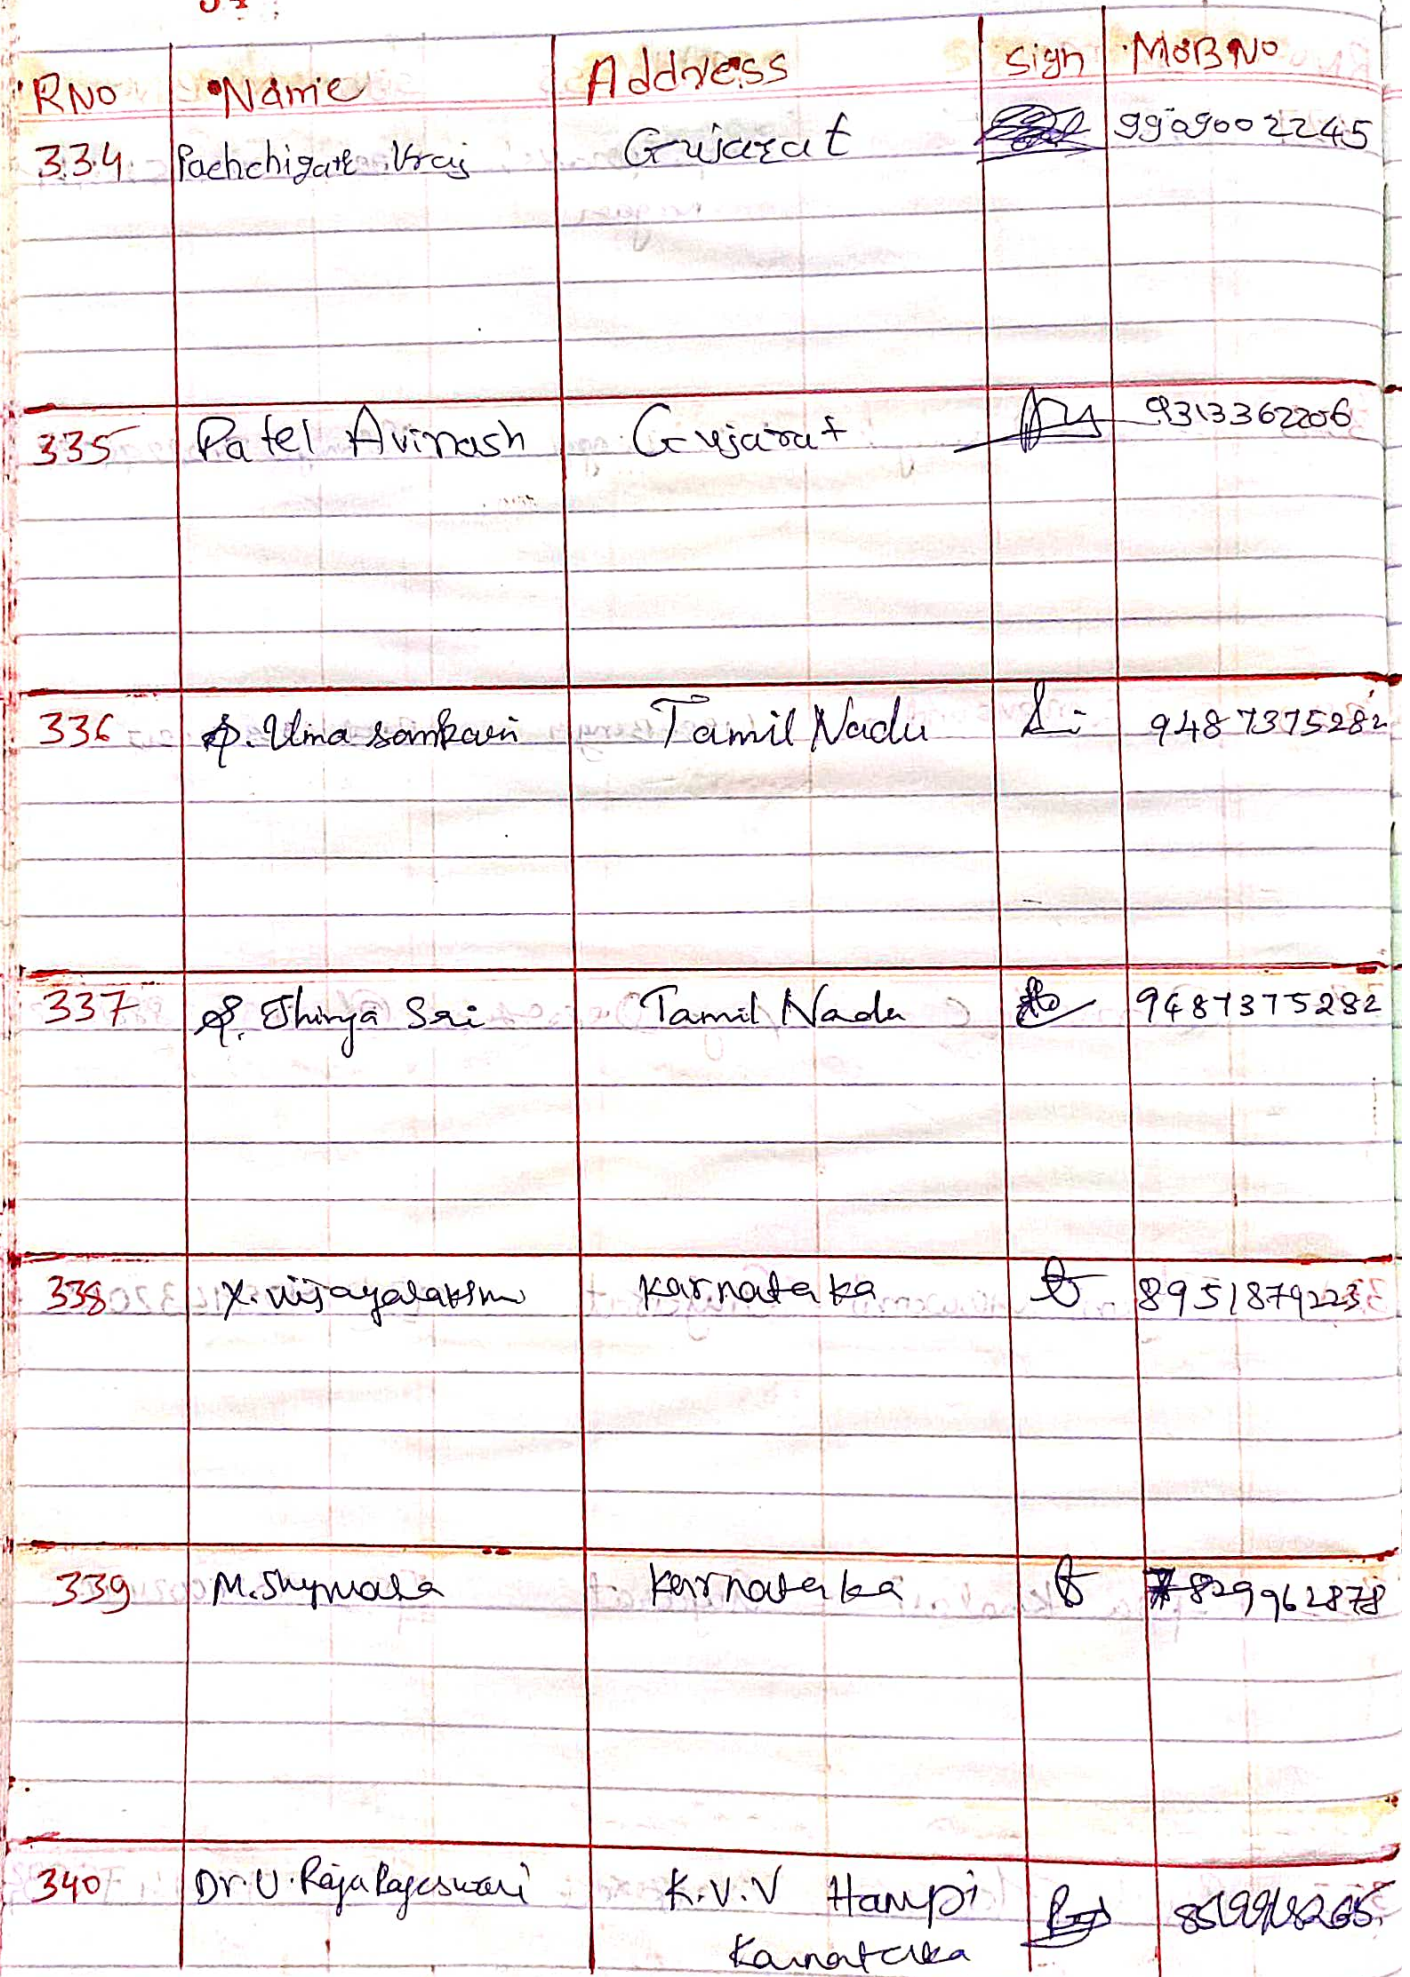 RNo Name Address Sign MOB No
334 Pachchigar Vraj Gujarat 9909002245
335 Patel Avinash Gujarat 9313362206
336 P. Uma Sankari Tamil Nadu 9487375282
337 P. Thirya Sri Tamil Nadu 9487375282
338 X. vijayalaksm Karnataka 8951879223
339 M. Karnataka 829962878
340 Dr. U. Raja Rajeswari K.V.V Hampi
Karnataka